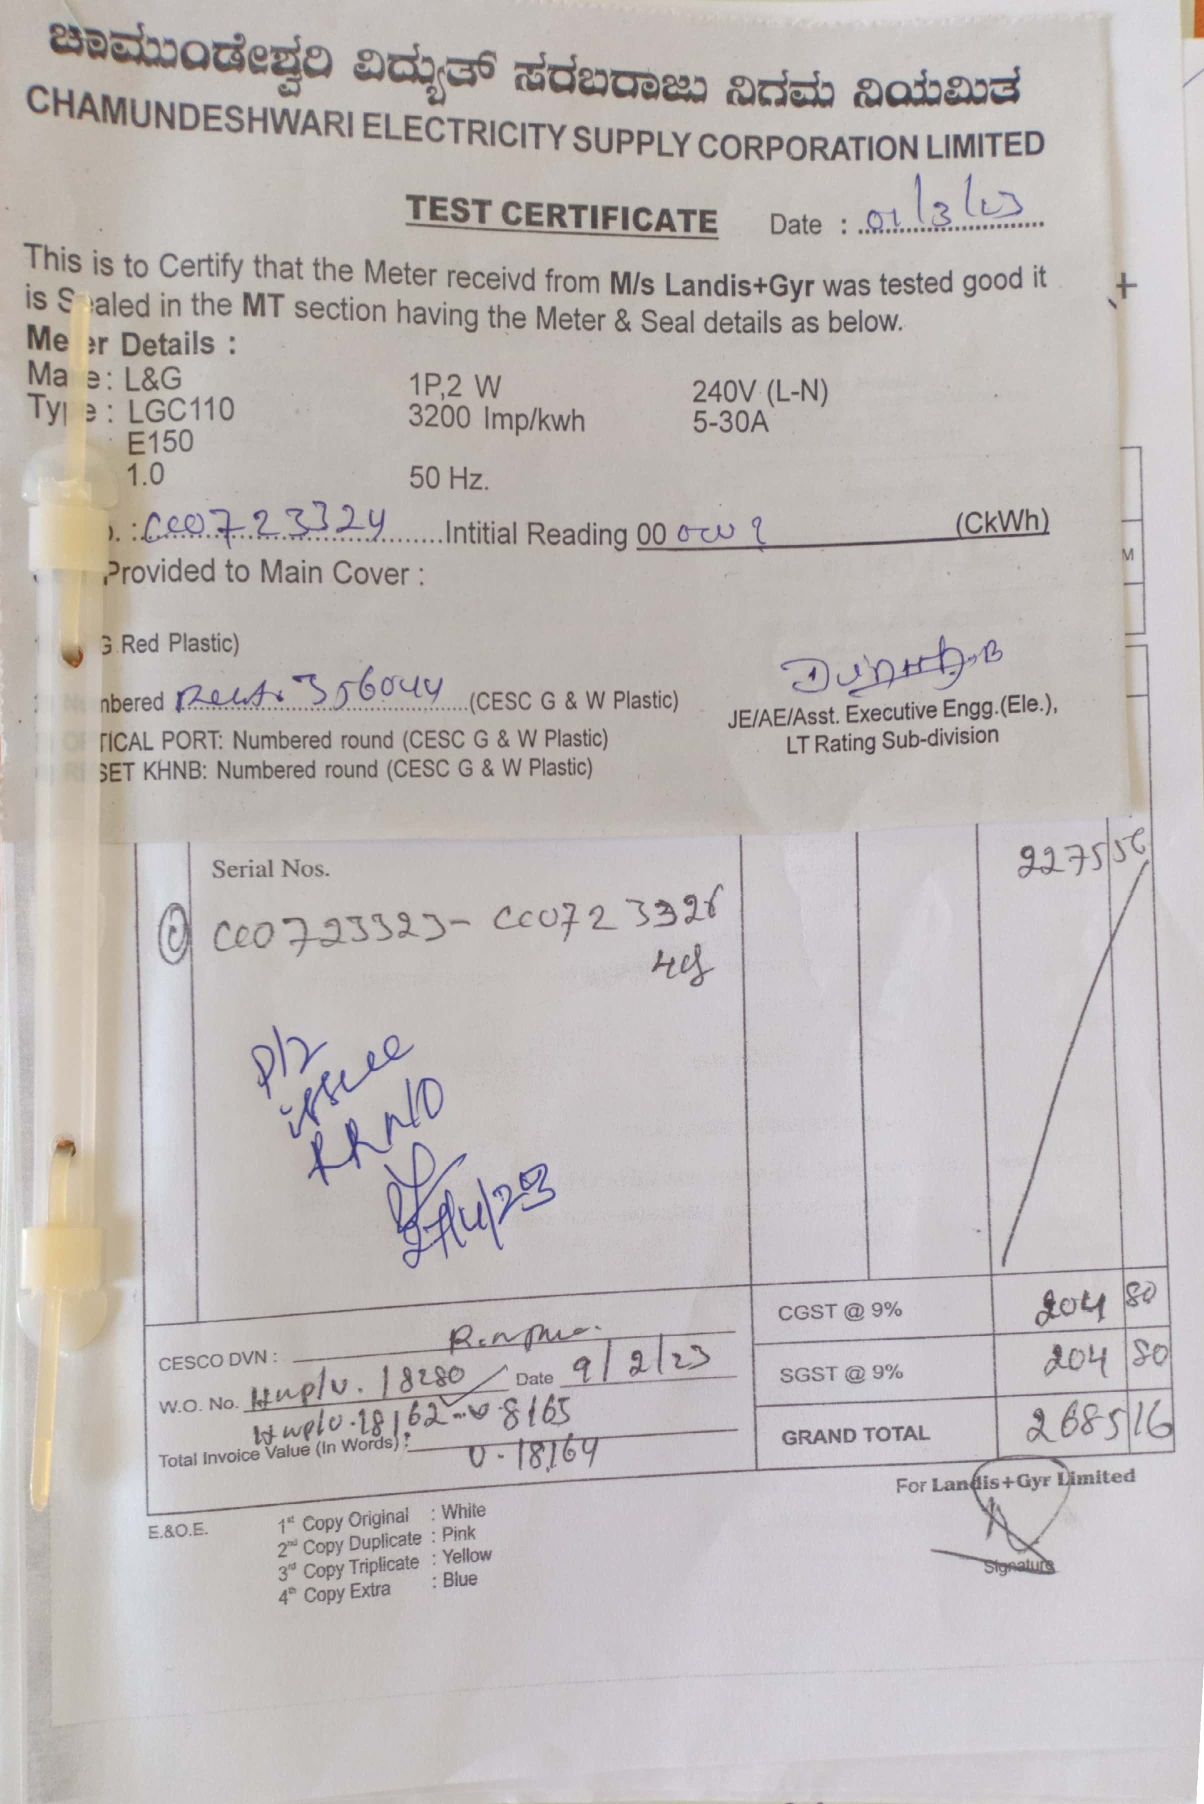 ಚಾಮುಂಡೇಶ್ವರಿ ವಿದ್ಯುತ್ ಸರಬರಾಜು ನಿಗಮ ನಿಯಮಿತ
CHAMUNDESHWARI ELECTRICITY SUPPLY CORPORATION LIMITED
TEST CERTIFICATE Date : 01/3/23
This is to Certify that the Meter receivd from M/s Landis+Gyr was tested good it
is Sealed in the MT section having the Meter & Seal details as below.
Meter Details :
Make : L&G 1P,2 W 240V (L-N)
Type : LGC110 3200 Imp/kwh 5-30A
E150
1.0 50 Hz.
. : CC0723324 Intitial Reading 00 (CkWh)
Provided to Main Cover :
G Red Plastic)
Numbered 356044 (CESC G & W Plastic)
JE/AE/Asst. Executive Engg.(Ele.),
OPTICAL PORT: Numbered round (CESC G & W Plastic)
LT Rating Sub-division
RESET KHNB: Numbered round (CESC G & W Plastic)
M
Serial Nos. 2275 56
CC0723323 - CC0723326
P/2
issue
RR n/o
27/4/23
CGST @ 9% 204 80
CESCO DVN :
SGST @ 9% 204 80
W.O. No. 18280 Date 9/2/23
18162 8165
Total Invoice Value (In Words) : 18164
GRAND TOTAL 2685 16
For Landis+Gyr Limited
Signature
E.&O.E. 1st Copy Original : White
2nd Copy Duplicate : Pink
3rd Copy Triplicate : Yellow
4th Copy Extra : Blue